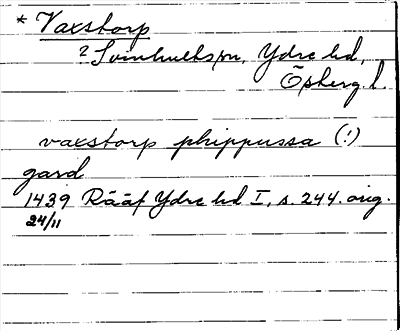 * Vaxstorp
? Svinhults sn, Ydre hd,
Östergl.
vaxstorp phippussa (!)
gard
1439 Rääf Ydre hd I, s. 244. orig.
24/11